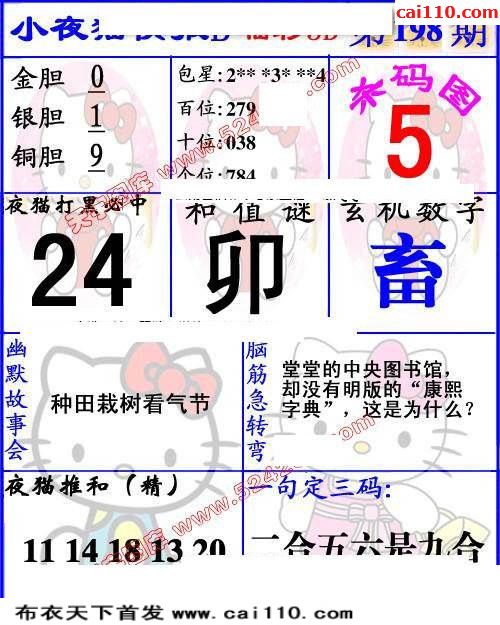 cai110.com
小夜猫
第198期
金胆 0
银胆 1
铜胆 9
包星:2** *3* **4
百位:279
十位:038
个位:784
码图
5
夜猫打黑必中
24
和值谜
卯
玄机数字
畜
幽默故事会
种田栽树看气节
脑筋急转弯
堂堂的中央图书馆,
却没有明版的“康熙
字典”,这是为什么?
夜猫推和（精）
11 14 18 13 20
一句定三码:
二合五六是九合
布衣天下首发 www.cai110.com